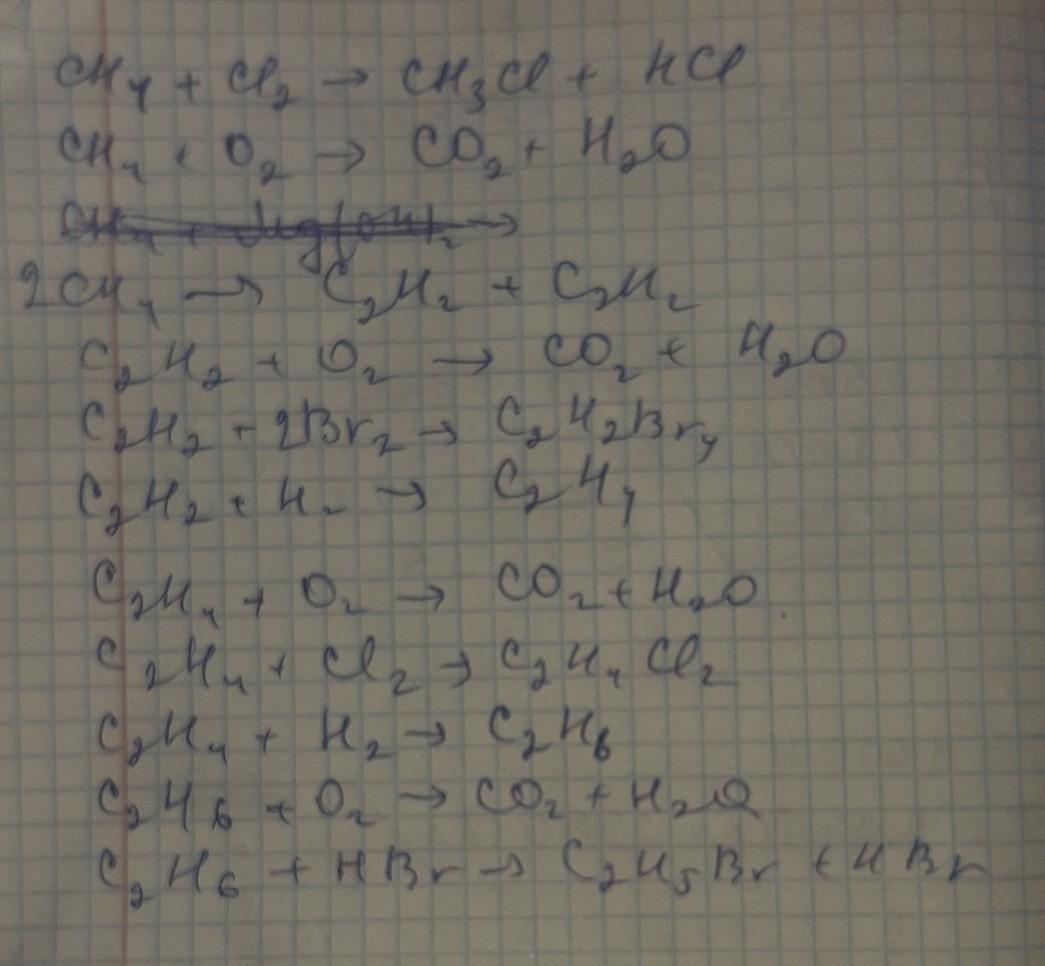 CH₄ + Cl₂ → CH₃Cl + HCl
CH₄ + O₂ → CO₂ + H₂O
2CH₄ → C₂H₂ + C₂H₂
C₂H₂ + O₂ → CO₂ + H₂O
C₂H₂ + 2Br₂ → C₂H₂Br₄
C₂H₂ + H₂ → C₂H₄
C₂H₄ + O₂ → CO₂ + H₂O
C₂H₄ + Cl₂ → C₂H₄Cl₂
C₂H₄ + H₂ → C₂H₆
C₂H₆ + O₂ → CO₂ + H₂O
C₂H₆ + HBr → C₂H₅Br + HBr